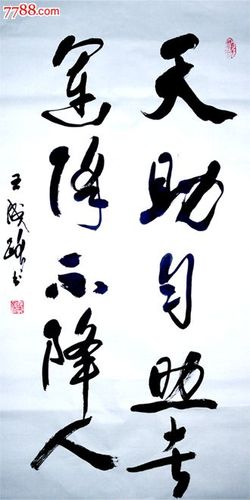 7788.com
天助自助者
運降不降人
王成